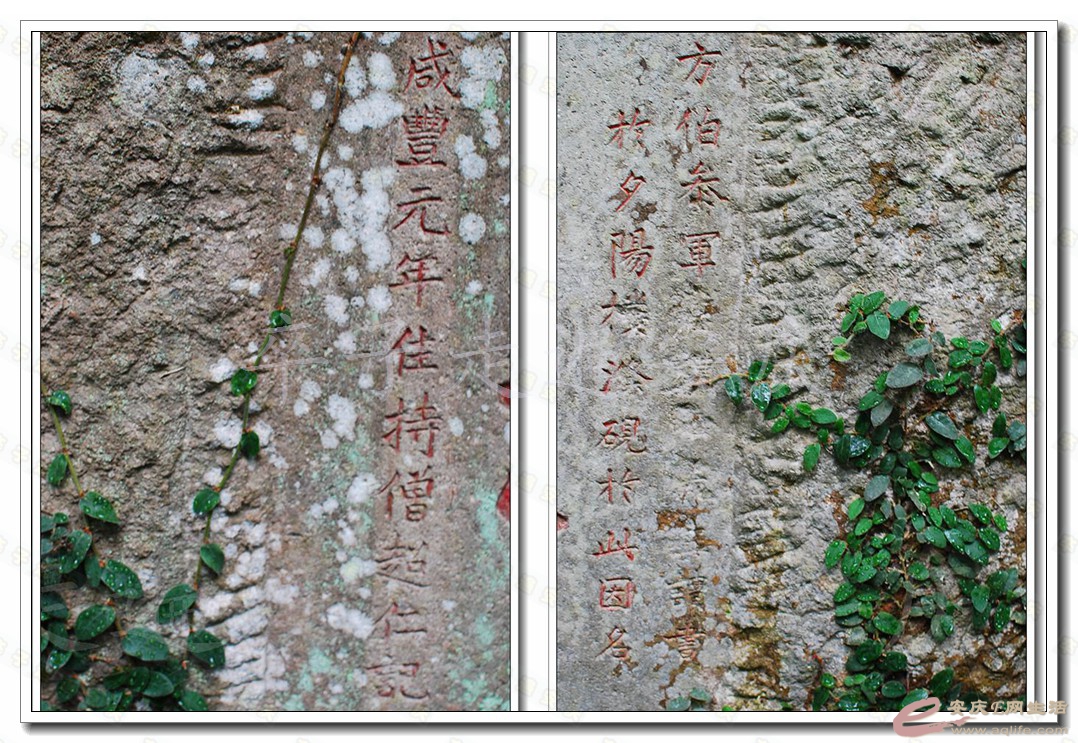 咸豐元年住持僧超仁記
方伯叅軍讀書
於夕陽樓滌硯於此因名
安庆E网生活
www.aqlife.com